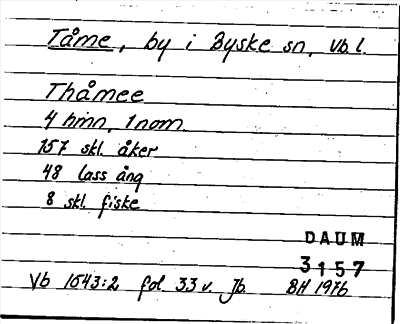 Tåme, by i Byske sn, Vb.l.
Thåmee
4 hmn, 1 nom.
157 skl. åker
48 lass äng
8 skl. fiske
DAUM
3157
Vb 1543:2 fol. 33 v. Jb. BH 1976